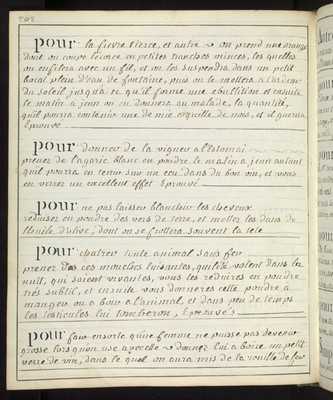 pour la fievre tierce, et autre on prend une orange
dont on coupe l'ecorce en petites tranches minces, les quelles
on enfilera avec un fil, et on les suspendra dans un petit
bocal plein d'eau de fontaine, puis on le mettera a l'ardeur
du soleil jusqu'a ce qu'il forme une ebullition et ensuite
le matin a jeun on en donnera au malade, la quantité,
quil pourra contenir une de mie coquille de nois, et il guerira
Eprouvé
pour donner de la vigueur a l'estomai
prenez de l'agaric blanc en poudre le matin a jeun autant
quil pourra en tenir sur un ecu dans du bon vin, et vous
en verrez un excellent effet Eprouvé
pour ne pas laisser blanchir les cheveux
reduisez en poudre des vers de terre, et mettez les dans de
l'huile d'olive, dont on se frottera souvent la tete
pour chatrer toute animal sans feu
prenez des ces mouches luisantes, qui lété volent dans la
nuit, qui soient vivantes, vous les réduirez en poudre
trés subtil, et ensuite vous donnerez cette poudre à
manger ou a boire a l'animal, et dans peu de temps
les testicules lui tomberon, Eprouvé
pour faire ensorte qu'une femme ne puisse pas devenir
grosse lors qu'on use a vec elle donnez lui a boire un petit
verre de vin, dans le quel on aura mis de la rouille de fer